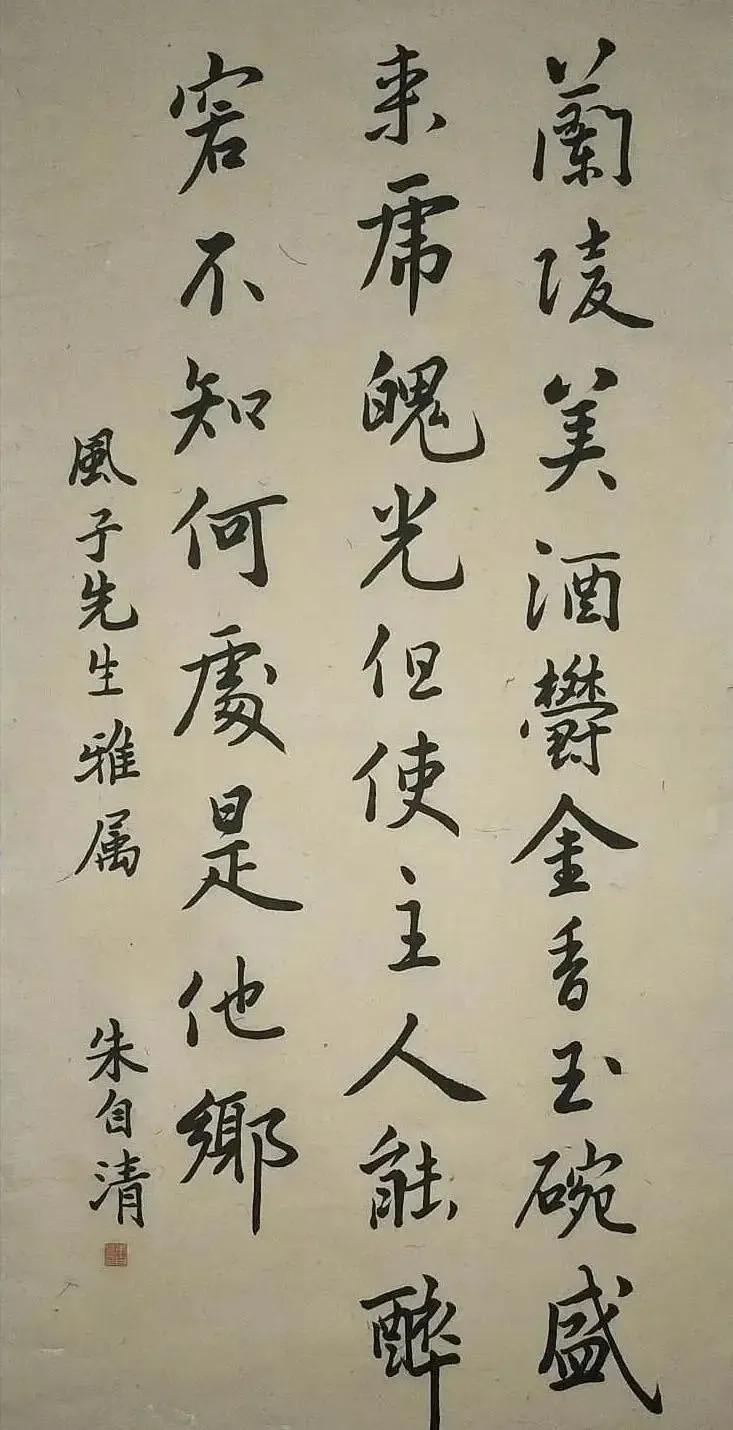 蘭陵美酒鬱金香玉碗盛
来虎魄光但使主人能醉
客不知何處是他鄉
風子先生雅属
朱自清